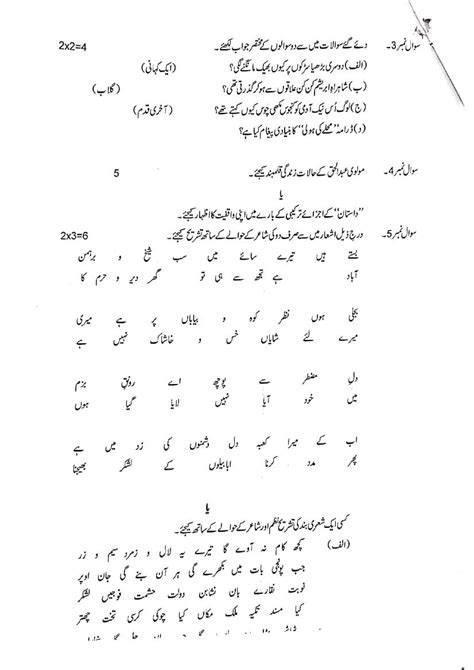 سوال نمبر 3۔ دئے گئے سوالات میں سے دو سوالوں کے مختصر جواب لکھئے۔ 2x2=4
(الف) دوسری بڑھیا سڑکوں پر کیوں بھیک مانگنے لگی؟ (ایک کہانی)
(ب) شاہراہِ ابریشم کن کن علاقوں سے ہو کر گذرتی تھی؟ (گلاب)
(ج) لوگ اُس نیک آدمی کو کنجوس مکھی چوس کیوں کہتے تھے؟ (آخری قدم)
(د) ڈرامہ "محلے کی ہولی" کا بنیادی پیغام کیا ہے؟
سوال نمبر 4۔ مولوی عبدالحق کے حالات زندگی قلمبند کیجئے۔ 5
یا
"داستان" کے اجزائے ترکیبی کے بارے میں اپنی واقفیت کا اظہار کیجئے۔
سوال نمبر 5۔ درج ذیل اشعار میں سے صرف دو کی شاعر کے حوالے کے ساتھ تشریح کیجئے۔ 2x3=6
بستے ہیں تیرے سائے میں سب شیخ و برہمن
آباد ہے تجھ سے ہی تو گھر دیر و حرم کا
بجلی ہوں نظر کوہ و بیاباں پر ہے میری
میرے لئے شایاں خس و خاشاک نہیں ہے
دلِ مضطر سے پوچھ اے رونقِ بزم
میں خود آیا نہیں لایا گیا ہوں
اب کے میرا کعبہ دل دشمنوں کی زد میں ہے
پھر مدد کرنا ابابیلوں کے لشکر بھیجنا
یا
کسی ایک شعری بند کی تشریح نظم اور شاعر کے حوالے کے ساتھ کیجئے۔
(الف) کچھ کام نہ آوے گا تیرے یہ لال و زمرد سیم و زر
جب پونجی بات میں بکھرے گی ہر آن بنے گی جان اوپر
نوبت نقارے بان نشان دولت حشمت فوجیں لشکر
کیا مسند تکیہ ملک مکاں کیا چوکی کرسی تخت چھتر